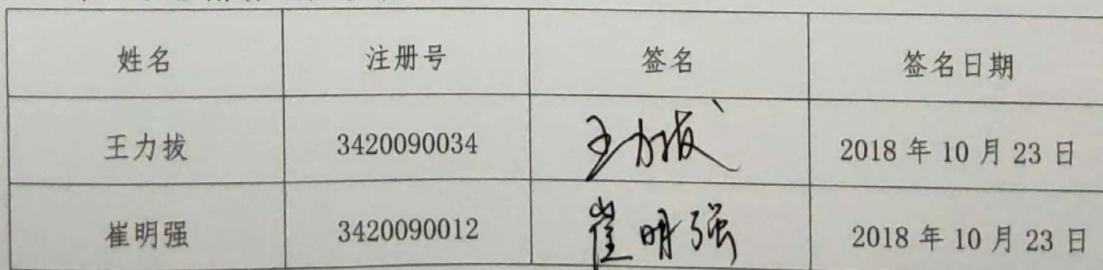 姓名 注册号 签名 签名日期
王力拔 3420090034 王力拔 2018 年 10 月 23 日
崔明强 3420090012 崔明强 2018 年 10 月 23 日